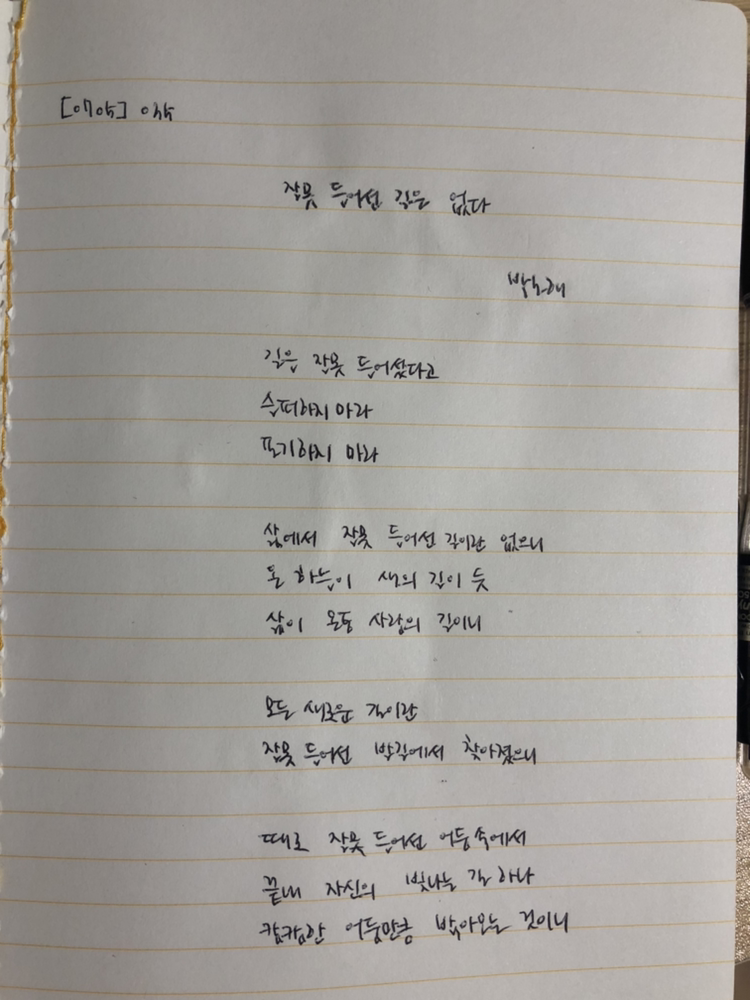 [예약] 예약
잘못 들어선 길은 없다
박노해
길을 잘못 들어섰다고
슬퍼하지 마라
포기하지 마라
삶에서 잘못 들어선 길이란 없으니
온 하늘이 새의 길이 듯
삶이 온통 사랑의 길이니
모든 새로운 길이란
잘못 들어선 발길에서 찾아졌으니
때로 잘못 들어선 어둠 속에서
끝내 자신의 빛나는 길 하나
캄캄한 어둠만큼 밝아오는 것이니